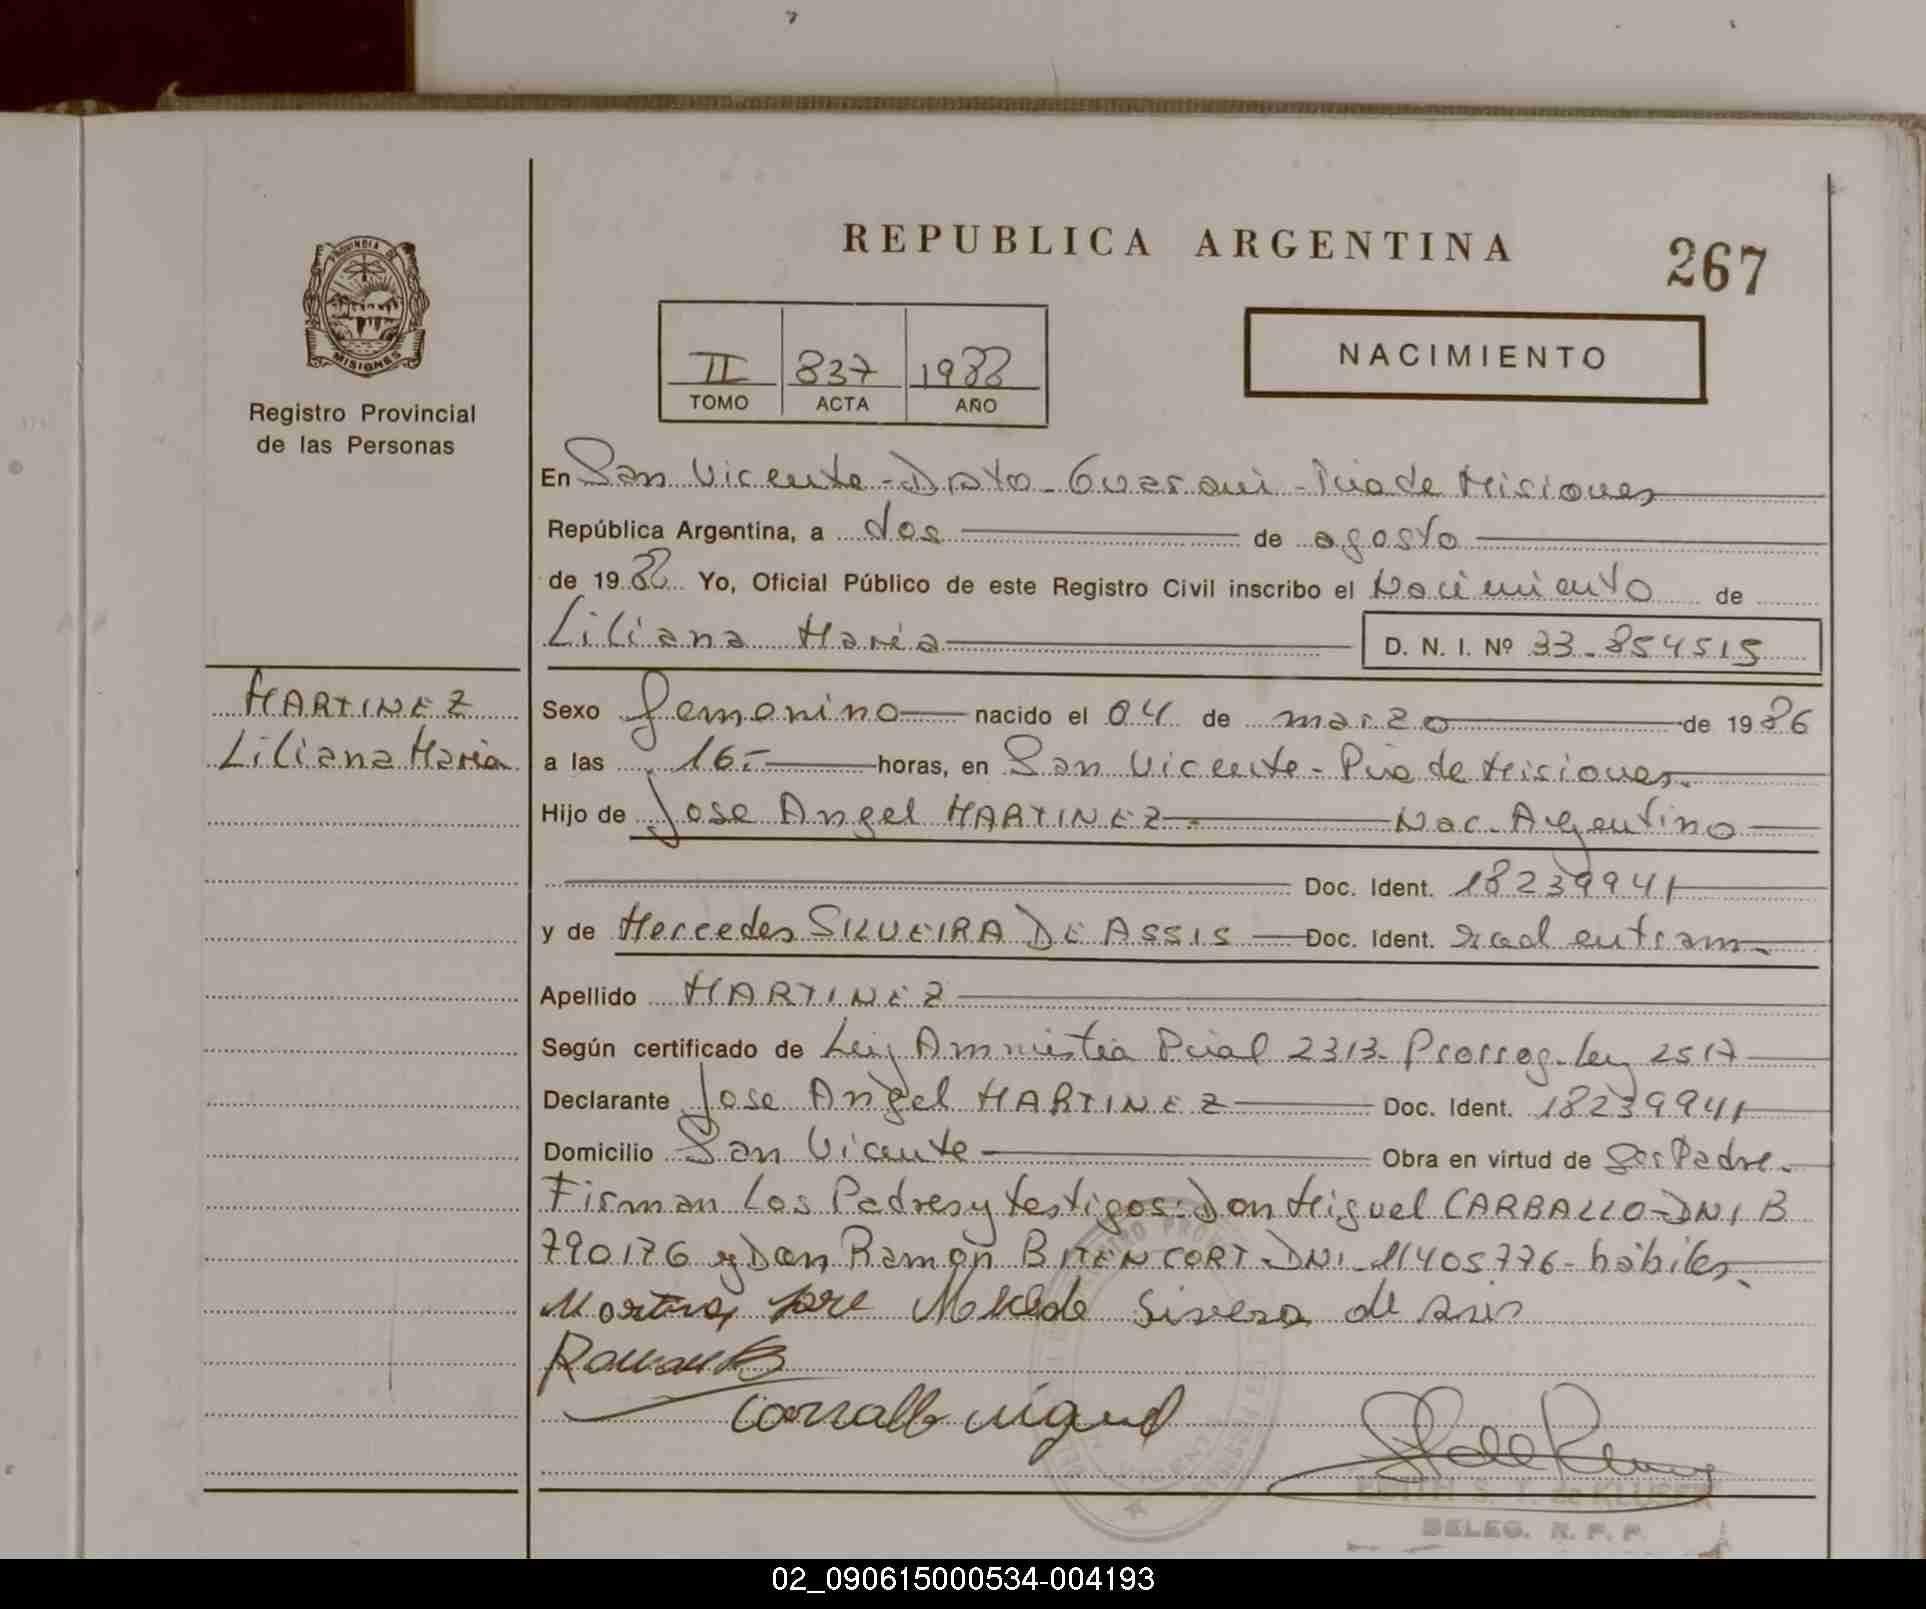 REPUBLICA ARGENTINA
267
PROVINCIA DE
MISIONES
Registro Provincial
de las Personas
II 837 1988
TOMO ACTA AÑO
NACIMIENTO
En San Vicente - Dpto - Guarani - Pcia de Misiones
República Argentina, a dos de agosto
de 19 88 Yo, Oficial Público de este Registro Civil inscribo el Nacimiento de
Liliana Maria D. N. I. Nº 33.854515
MARTINEZ
Liliana Maria
Sexo femenino nacido el 04 de marzo de 1986
a las 16.- horas, en San Vicente - Pcia de Misiones.
Hijo de Jose Angel MARTINEZ - Nac. Argentino
Doc. Ident. 18239941
y de Mercedes SILVEIRA DE ASSIS Doc. Ident. rad en tram.
Apellido MARTINEZ
Según certificado de Ley Amnistia Pcial 2313- Prorrog. Ley 2517
Declarante Jose Angel MARTINEZ Doc. Ident. 18239941
Domicilio San Vicente Obra en virtud de Ser Padre.
Firman los Padres y testigos: Don Miguel CARBALLO - DNI 8
790176 y Don Ramón BITENCORT - DNI - 11405776 - hábiles.
Martinez jose Mercede Sivera de asis
Ramon B
Carvallo Miguel
EDITH S. T. de KLUSER
DELEG. R. P. P.
02_090615000534-004193